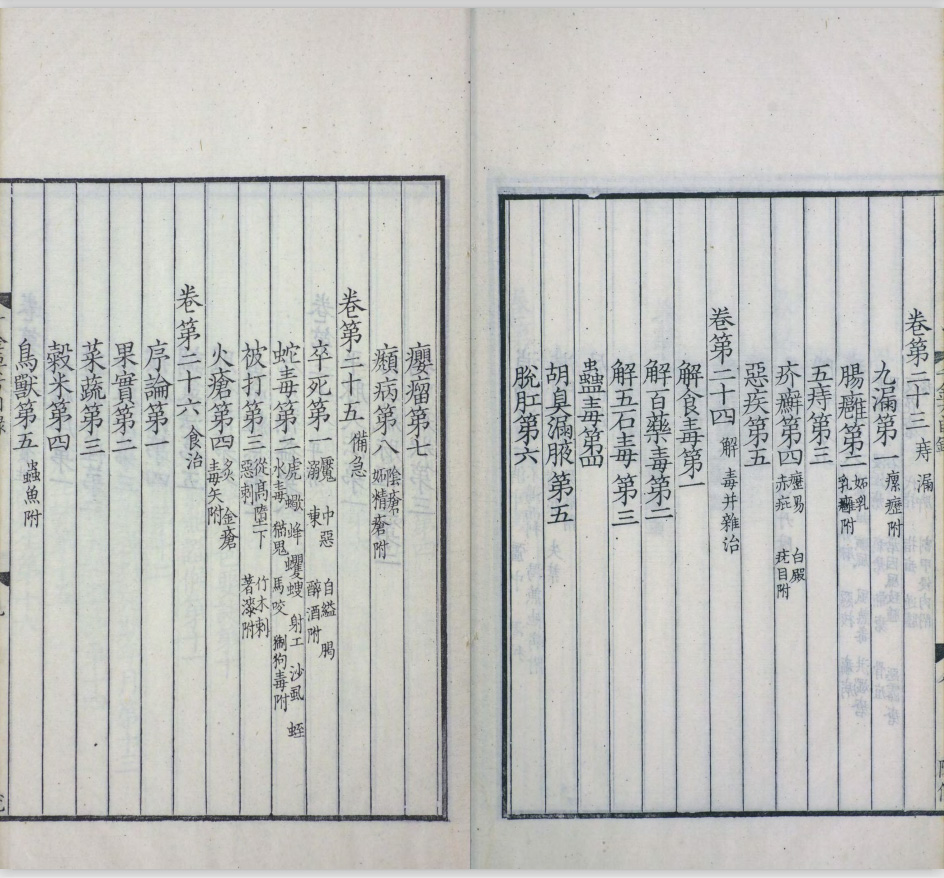 卷第二十三 痔漏
九漏第一 瘰癧附
腸癰第二 妬乳 乳癰附
五痔第三
疥癬第四 癧易 白癜 赤疵 疣目附
惡疾第五
卷第二十四 解毒并雜治
解食毒第一
解百藥毒第二
解五石毒第三
蠱毒第四
胡臭漏腋第五
脫肛第六
癭瘤第七
㿗病第八 陰瘡 妬精瘡附
卷第二十五 備急
卒死第一 魘 中惡 自縊 暍 溺 東 醉酒附
蛇毒第二 虎 蠍 蜂 蠼螋 射工 沙虱 蛭 水毒 猫鬼 馬咬 猘狗毒附
被打第三 從高墮下 竹木刺 惡刺 著漆附
火瘡第四 炙 金瘡 毒矢附
卷第二十六 食治
序論第一
果實第二
菜蔬第三
穀米第四
鳥獸第五 蟲魚附